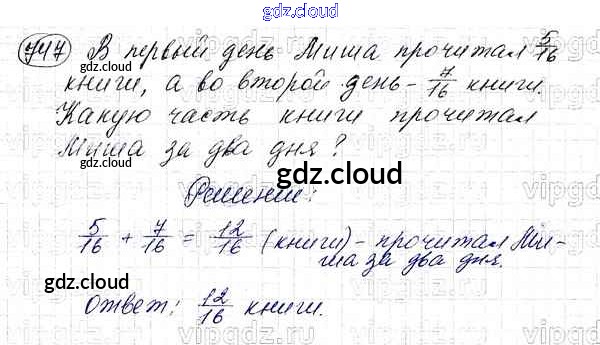 gdz.cloud
747 В первый день Миша прочитал 5/16
gdz.cloud
книги, а во второй день - 7/16 книги.
Какую часть книги прочитал
Миша за два дня?
gdz.cloud
gdz.cloud
Решение:
5/16 + 7/16 = 12/16 (книги) - прочитал Ми-
ша за два дня.
gdz.cloud
gdz.cloud
Ответ: 12/16 книги.